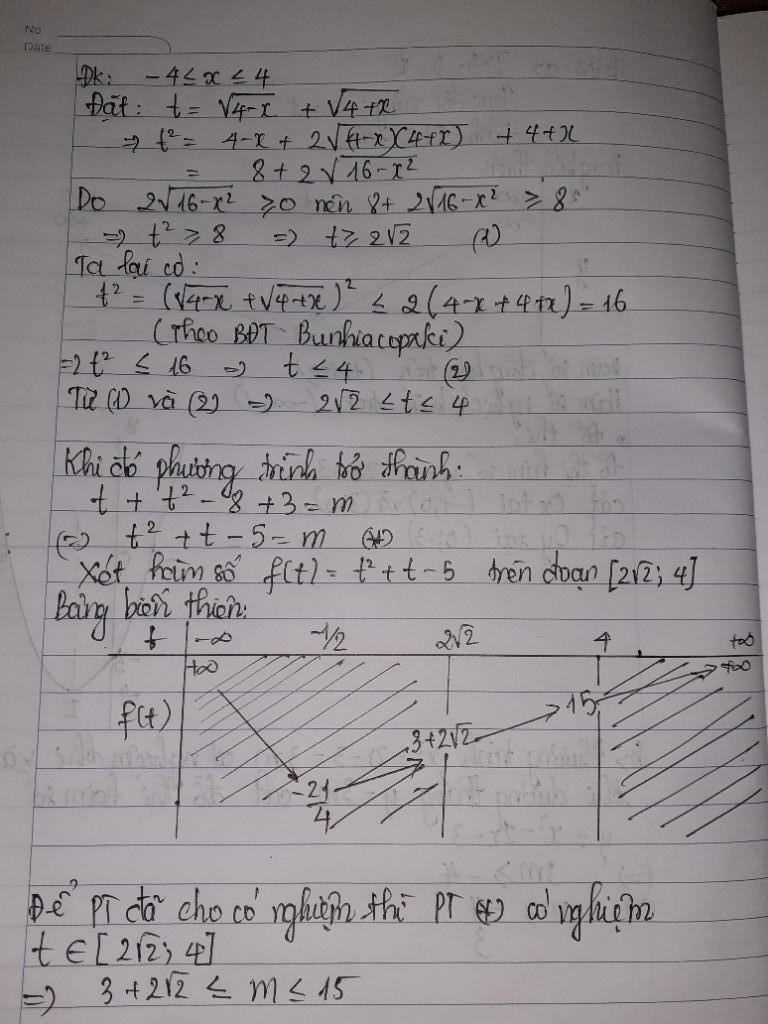 No
Date
Đk: -4 ≤ x ≤ 4
Đặt: t = √(4-x) + √(4+x)
=> t² = 4-x + 2√((4-x)(4+x)) + 4+x
= 8 + 2√(16-x²)
Do 2√(16-x²) ≥ 0 nên 8 + 2√(16-x²) ≥ 8
=> t² ≥ 8 => t ≥ 2√2 (1)
Ta lại có:
t² = (√(4-x) + √(4+x))² ≤ 2(4-x+4+x) = 16
(Theo BĐT Bunhiacopxki)
=> t² ≤ 16 => t ≤ 4 (2)
Từ (1) và (2) => 2√2 ≤ t ≤ 4
Khi đó phương trình trở thành:
t + t² - 8 + 3 = m
(=) t² + t - 5 = m (*)
Xét hàm số f(t) = t² + t - 5 trên đoạn [2√2; 4]
Bảng biến thiên:
t -∞ -1/2 2√2 4 +∞
+∞ +∞
f(t) 3+2√2 15
-21/4
Để PT đã cho có nghiệm thì PT (*) có nghiệm
t ∈ [2√2; 4]
=> 3 + 2√2 ≤ m ≤ 15